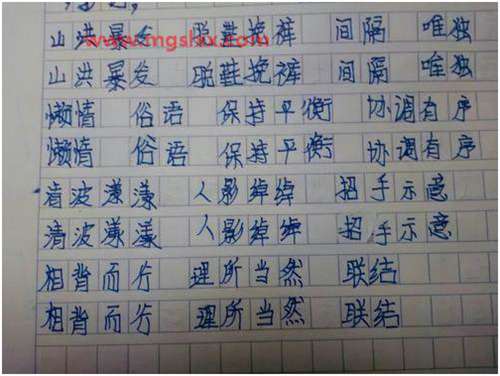 www.mgshxx.com
山洪暴发 脱鞋挽裤 间隔 唯独
山洪暴发 脱鞋挽裤 间隔 唯独
懒惰 俗语 保持平衡 协调有序
懒惰 俗语 保持平衡 协调有序
清波漾漾 人影绰绰 招手示意
清波漾漾 人影绰绰 招手示意
相背而行 理所当然 联结
相背而行 理所当然 联结